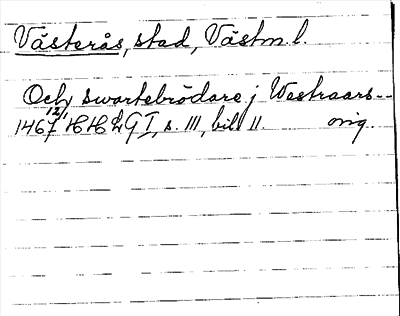 Västerås, stad, Västm. l.
Och swartebrödare j Westraars--
1467 12/1 HH LG I, s. 111, bil. 11. orig.